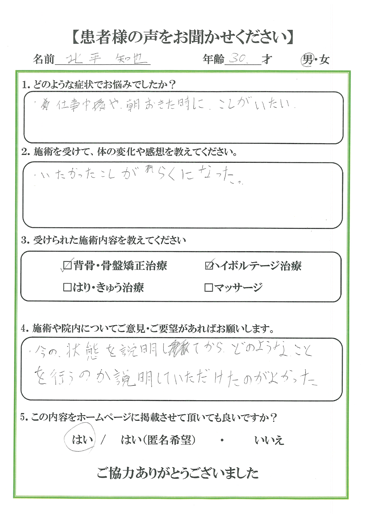 【患者様の声をお聞かせください】
名前 北平 知也 年齢 30 才 男・女
1. どのような症状でお悩みでしたか？
・仕事中機や、朝おきた時に、こしがいたい
2. 施術を受けて、体の変化や感想を教えてください。
・いたかったこしがらくになった。
3. 受けられた施術内容を教えてください
☑背骨・骨盤矯正治療 ☑ハイボルテージ治療
□はり・きゅう治療 □マッサージ
4. 施術や院内についてご意見・ご要望があればお願いします。
・今の、状態を説明してから、どのようなこと
を行うのか説明していただけたのがよかった
5. この内容をホームページに掲載させて頂いても良いですか？
はい / はい(匿名希望) ・ いいえ
ご協力ありがとうございました